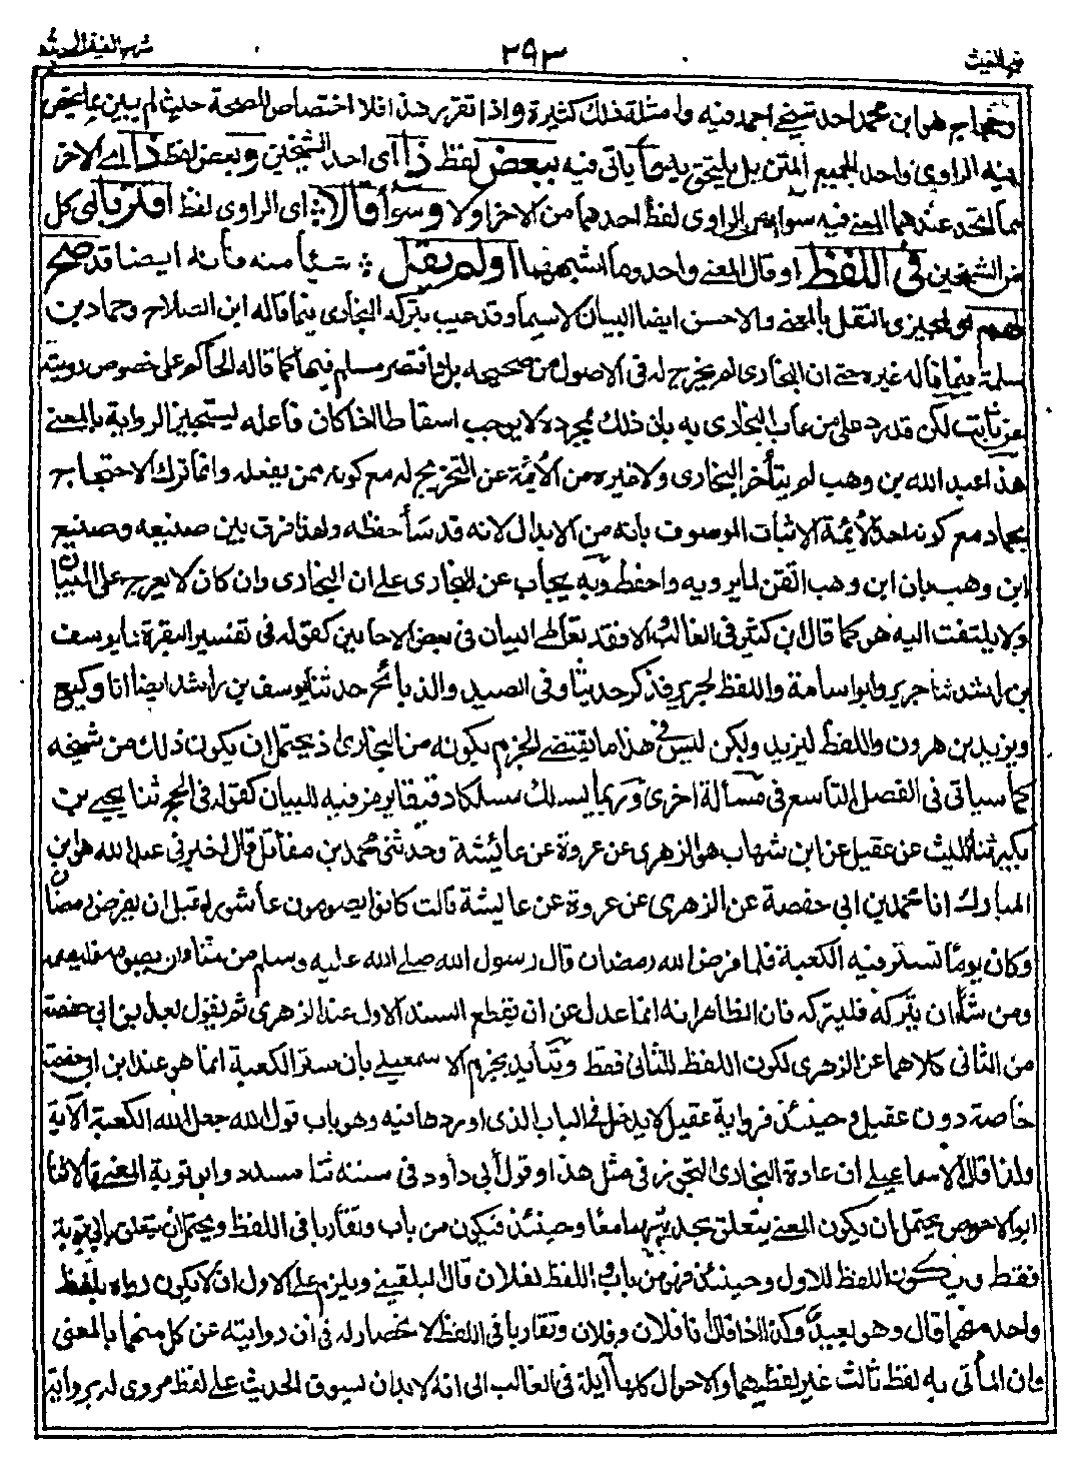 فتح المغيث ٢٩٣ شرح الفية الحديث
وحجاج هو ابن محمد احد شيخي احمد فيه وامثلة ذلك كثيرة واذا تقرر هذا فلا اختصاص للصحة حيث لم يبين بما يخص
فيه الراوي واحد بجميع المتن بل يلتحق به ما ياتى فيه ببعض لفظ ذا اى احد الشيخين وبعض لفظ ذا اى الاخر
مما اتحد عندهما المعنى فيه سواء ميز الراوى لفظ احدهما من الاخر اولا وسواء قالا اى الراوى لفظ اقتربا اى كل
من الشيخين فى اللفظ او قال المعنى واحد وما اشبههما او لم يقل شيأ منه فانه ايضا قد صح
لهم اى لمجيزى النقل بالمعنى والاحسن ايضا البيان لاسيما وقد عيب بتركه البخارى فيما قاله ابن السلام وحماد بن
سلمة فيما قاله غيره حتى ان البخارى لم يخرج له فى الاصول من صحيحه بل واقتصر مسلم فيها كما قاله الحاكم على خصوص روايته
عن ثابت لكن قد رد على من عاب البخارى به بان ذلك بمجرده لا يوجب اسقاطا اذا كان فاعله يستجيز الرواية بالمعنى
هذا عبد الله بن وهب لم يتأخر البخارى ولا غيره من الأئمة عن التخريج له مع كونه ممن يفعله وانما ترك الاحتجاج
بحماد مع كونه احد الأئمة الاثبات الموصوف بانه من الابدال لانه قد سأ حفظه ولهذا فرق بين صنيعه وصنيع
ابن وهب بان ابن وهب اتقن لما يرويه واحفظ وبه يجاب عن البخارى على ان البخارى وان كان لا يعرج على البيان
ولا يلتفت اليه هو كما قال ابن كثير فى الغالب والا فقد تعاطى البيان فى بعض الاحايين كقوله فى تفسير البقرة ثنا يوسف
بن راشد ثنا جرير وابو اسامة واللفظ لجرير فذكر حديثا وفى الصيد والذبائح حدثنا يوسف بن راشد ايضا انا وكيع
ويزيد بن هرون واللفظ ليزيد ولكن ليس فى هذا ما يقتضى الجزم بكونه من البخارى اذ يحتمل ان يكون ذلك من شيخه
كما سياتى فى الفصل التاسع فى مسألة اخرى وربما يسلك مسلكا دقيقا يرمز فيه للبيان كقوله فى الحج ثنا يحيى بن
بكير ثنا الليث عن عقيل عن ابن شهاب هو الزهرى عن عروة عن عائشة وحدثنى محمد بن مقاتل قال اخبرنى عبد الله هو ابن
المبارك انا محمد بن ابى حفصة عن الزهرى عن عروة عن عايشة قالت كانوا يصومون عاشورا قبل ان يفرض رمضان
وكان يوما تستر فيه الكعبة فلما فرض الله رمضان قال رسول الله صلى الله عليه وسلم من شاء ان يصومه فليصمه
ومن شاء ان يتركه فليتركه فان الظاهر انه انما عدل عن ان يقطع السند الاول عند الزهرى ثم يقول بعد بن ابى حفصة
من الثانى كلاهما عن الزهرى لكون اللفظ للثانى فقط وتتأيد بجزم الاسمعيلى بان ستر الكعبة انما هو عند ابن ابى حفصة
خاصة دون عقيل وحينئذ فرواية عقيل لا يدخل فى الباب الذى اوردها فيه وهو باب قول الله جعل الله الكعبة الآية
ولذا قال الاسماعيلى ان عادة البخارى التجوز فى مثل هذا وقول أبى داود فى سننه ثنا مسدد وابو توبة المعنى قالا ثنا
ابو الاحوص يحتمل ان يكون المعنى يتعلق بحديثهما معا وحينئذ فيكون من باب وتقاربا فى اللفظ ويحتمل ان يتعلق بابى توبة
فقط ويكون اللفظ للاول وحينئذ فهو من باب واللفظ لفلان قال البلقينى ويلزم على الاول ان لا يكون رواه بلفظ
واحد منهما قال وهو بعيد وكذا اذا قال انا فلان وفلان وتقاربا فى اللفظ لا انحصار له فى أن روايته عن كل منهما بالمعنى
وان المأتى به لفظ ثالث غير لفظيهما والاحوال كلها آيلة فى الغالب الى انه لابد ان يسوق الحديث على لفظ مروى له برواية